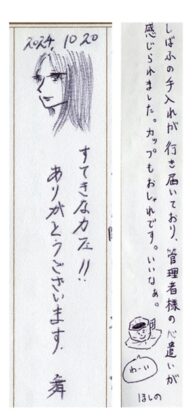 2024. 10 20
すてきなカフェ!!
ありがとうございます。
舞
しばふの手入れが行き届いており、管理者様の心遣いが
感じられました。カップもおしゃれです。いいなぁ。
わーい
ほしの